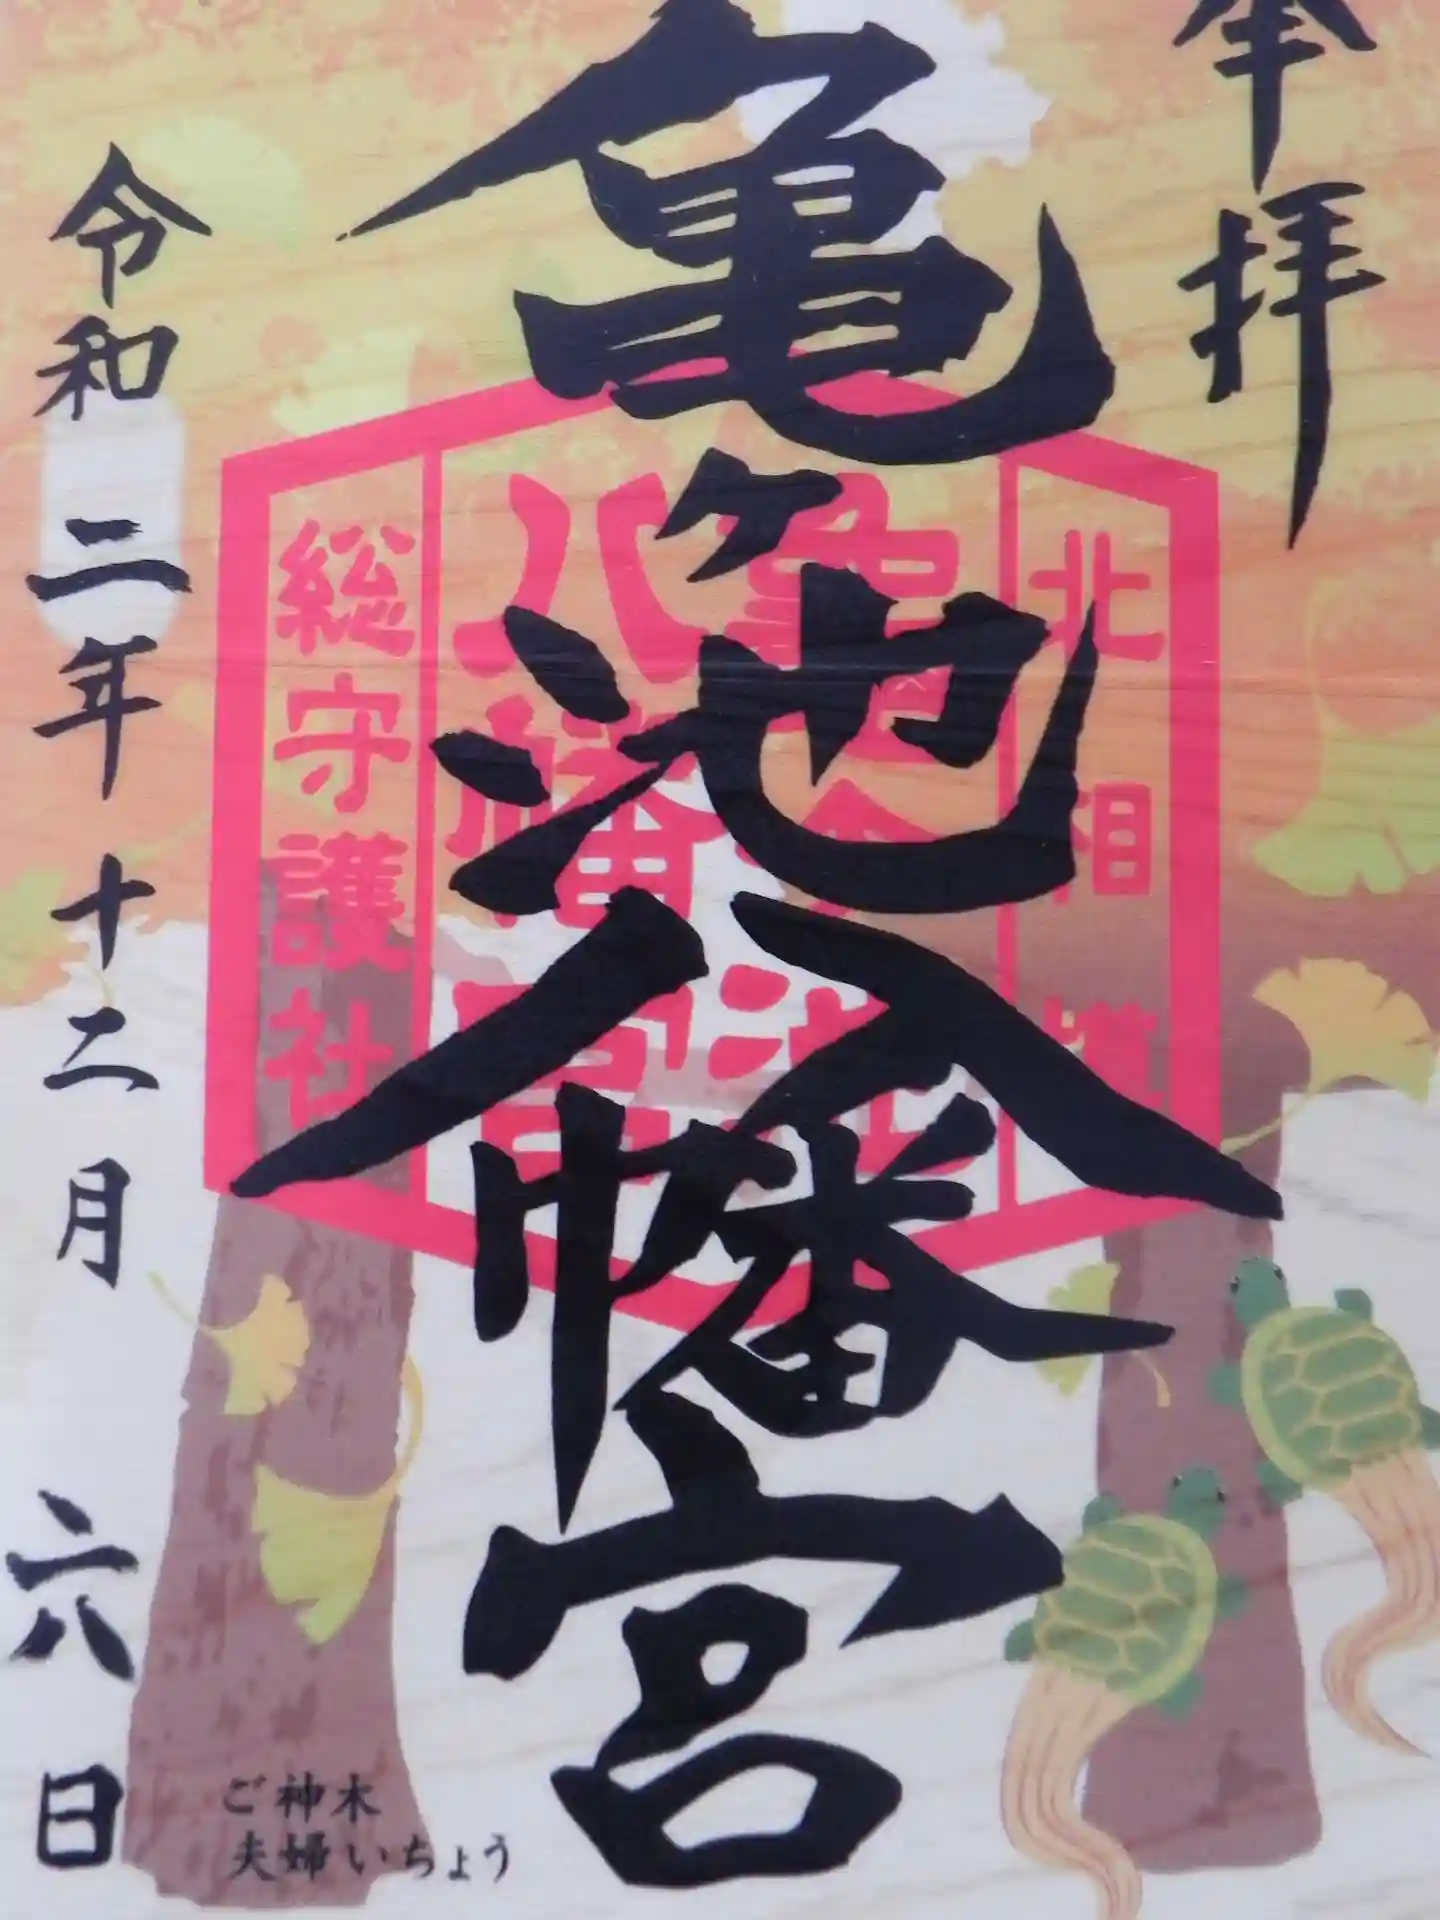 奉拝
亀ヶ池八幡宮
北相模
亀ヶ池
八幡宮
総守護社
令和二年十二月六日
ご神木
夫婦いちょう